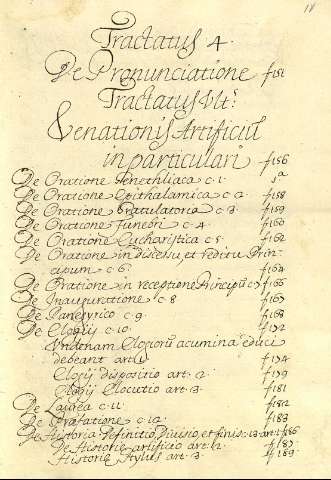 18
Tractatus 4.
De Pronunciatione f 151
Tractatus Ult.s
Venationis Artificiũ
in particulari f 156
De Oratione Genethliaca c. 1. sa
De Oratione Epithalamica c. 2. f 158
De Oratione Gratulatoria c. 3. f 159
De Oratione Funebri c. 4. f 160
De Oratione Eucharistica c. 5. f 162
De Oratione in discessu et reditu Prin-
cipum c. 6. f 164
De Oratione in receptione Principũ c. 7 f 166
De Inauguratione c. 8 f 167
De Panegyrico c. 9. f 168
De Elogijs c. 10. f 172
Undenam Elogiorũ acumina educi
debeant art. 1. f 174
Elogij dispositio art. 2. f 179
Elogij Elocutio art. 3. f 181
De Laurea c. 11. f 182
De Præfatione c. 12. f 183
De Historia Definitio, Divisio, et finis. 13. art. 1 f 186
De Historiæ artificio art. 2. f 187
Historiæ Stylus art. 3. f 189